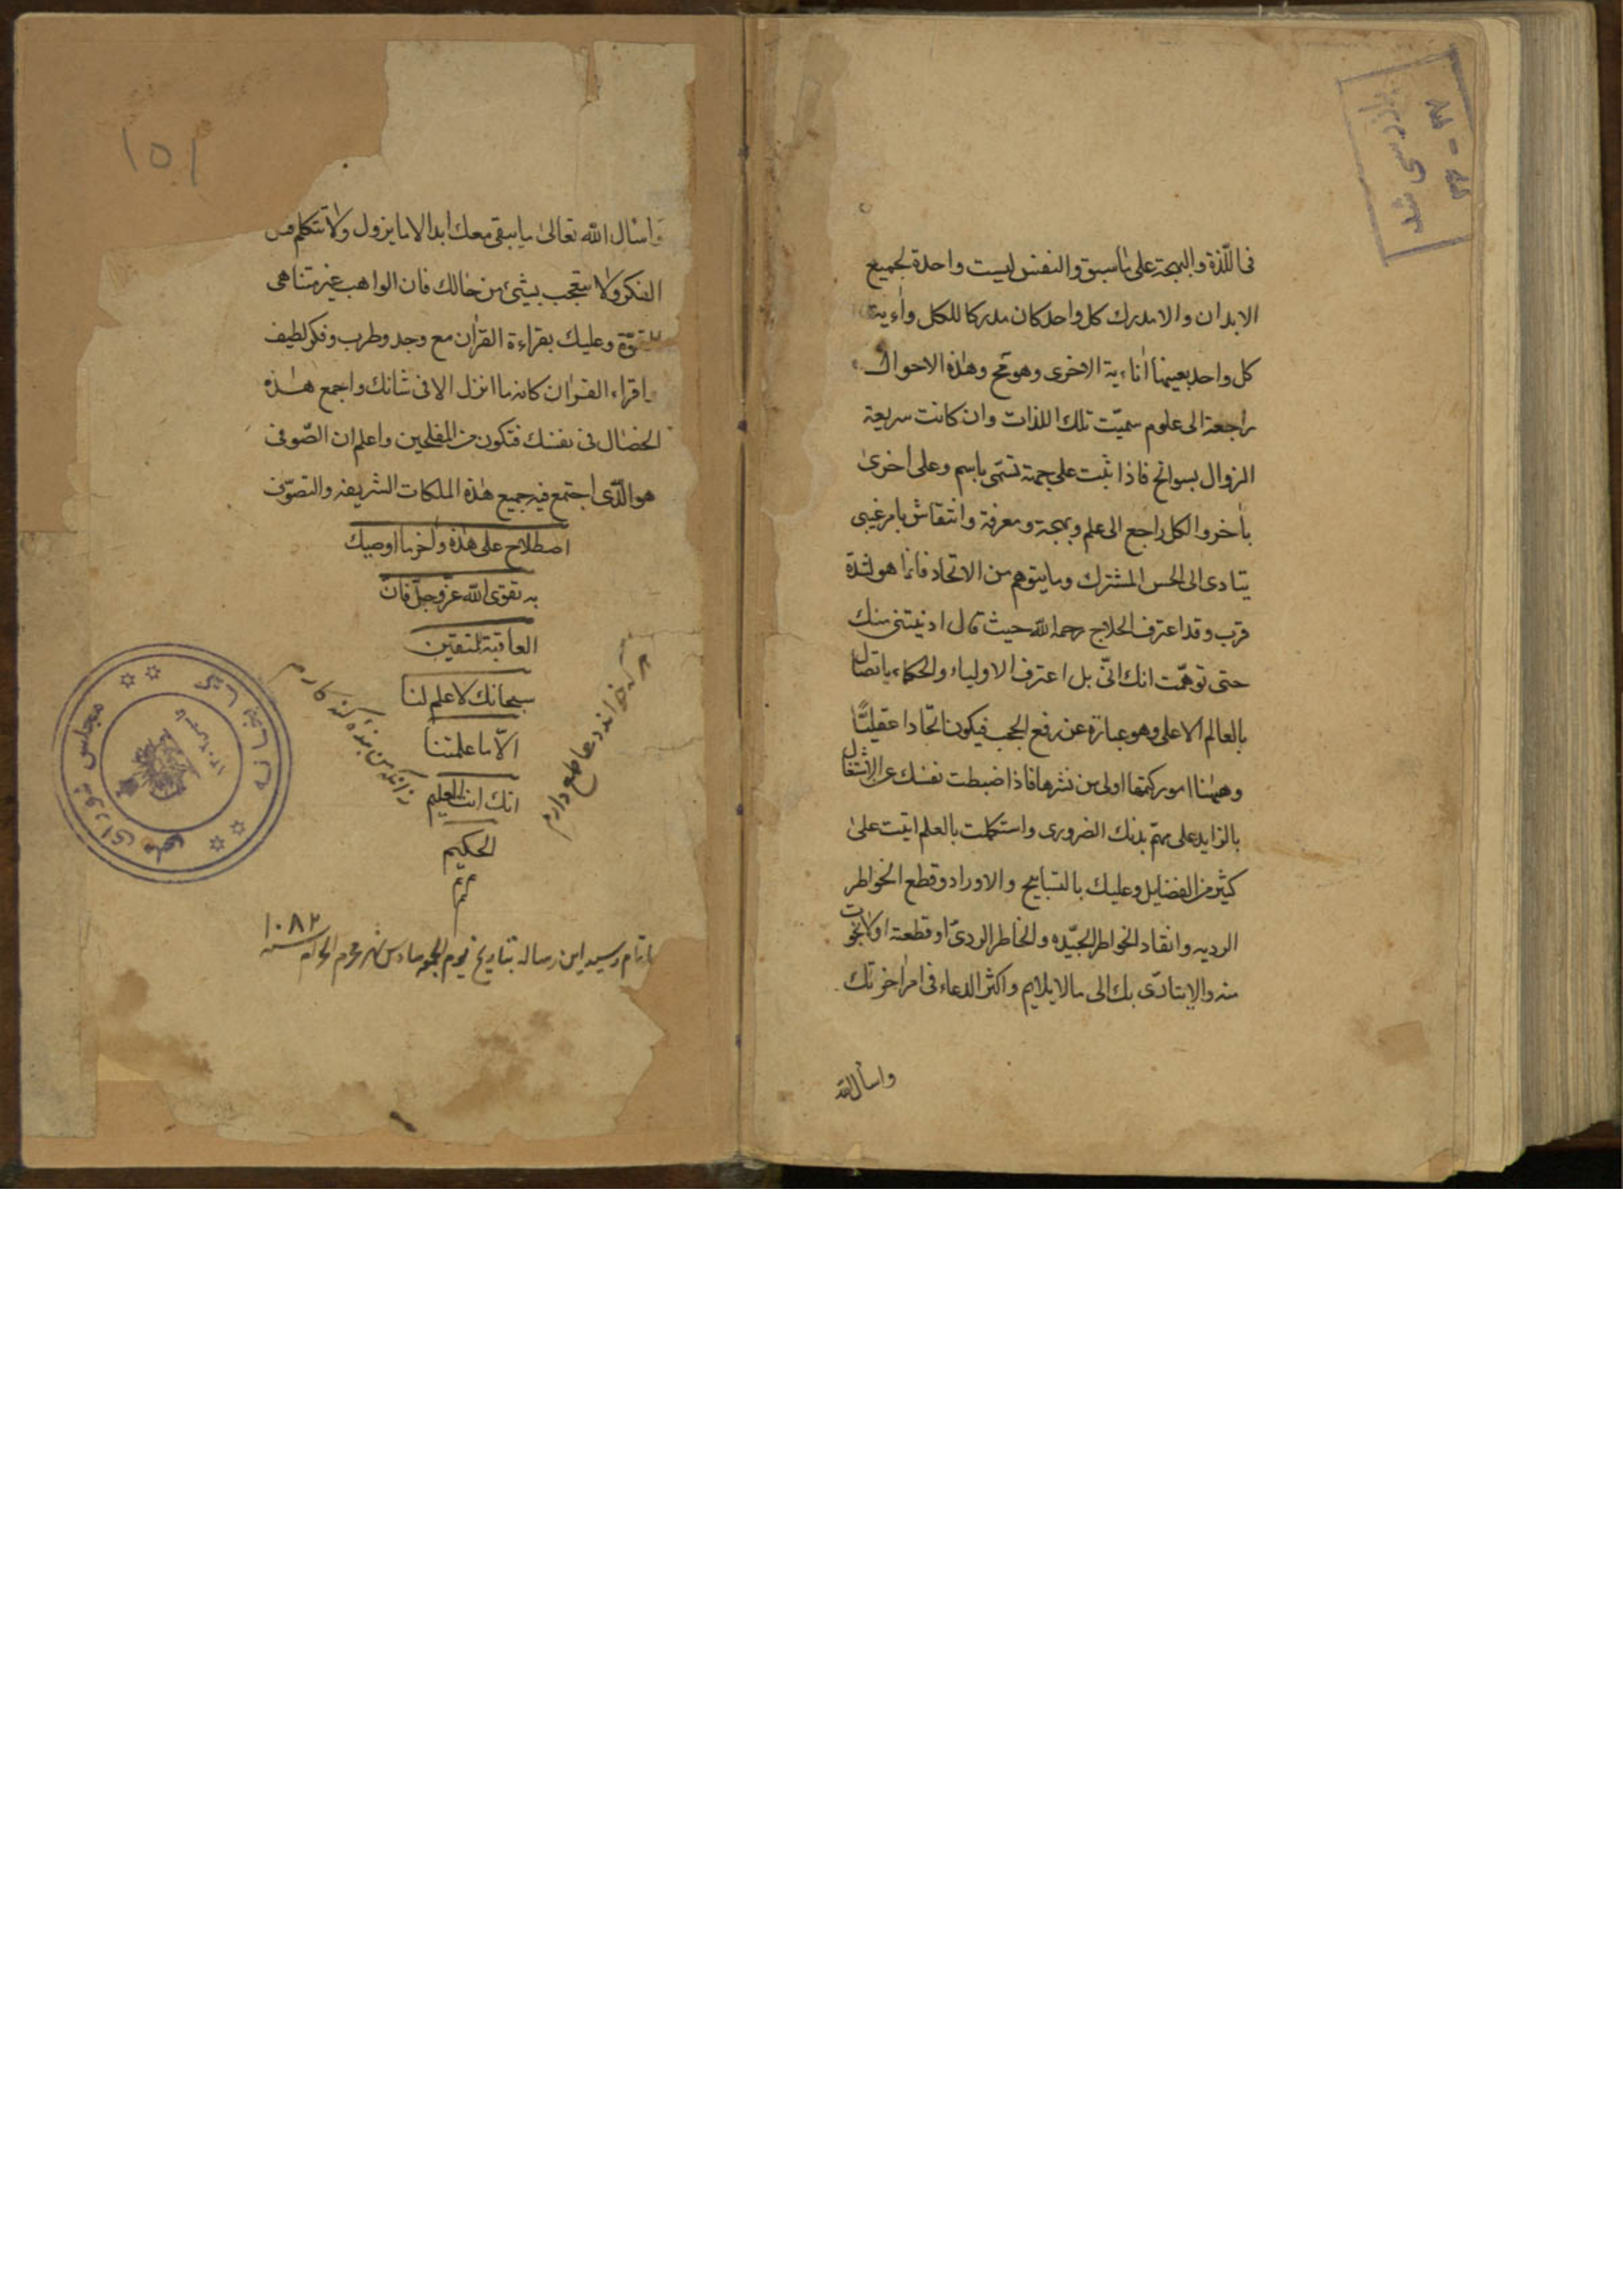 فى اللّذة والبهجة على ما سبق والنفس ليست واحدة لجميع
الابدان والا مدرك كل واحد كان مدركا للكل
كل واحد بعينها انائية الاخرى وهو مح وهذه الاحوال
راجعة الى علوم سميّت تلك اللذات وان كانت سريعة
الزوال بسوانح فاذا ثبت على جهة تسمّى باسم وعلى اخرى
بآخر والكل راجع الى علم وبهجة ومعرفة وانتقاش بامر غيبى
يتادى الى الحس المشترك وما يتوهم من الاتحاد فانما هو لشدة
قرب وقد اعترف الحلاج رحمه الله حيث قال ادنيتنى منك
حتى توهّمت انك انّى بل اعترف الاولياء والحكماء باتصال
بالعالم الاعلى وهو عبارة عن رفع الحجب فيكون اتحادا عقليّا
وههنا امور كتمها اولى من نشرها فاذا ضبطت نفسك عن الاشتغال
بالزايد على مهمّ بدنك الضرورى واستكملت بالعلم اتيت على
كثير من الفضايل وعليك بالتسابيح والاوراد وقطع الخواطر
الرديه وانقاد الخواطر الجيّده والخاطر الردىّ اذ قطعته اولا نجوت
منه والا يتادّى بك الى مالا يلايم واكثر الدعاء فى امر اخرتك
واسأل الله
١٥١
واسأل الله تعالى ما يبقى معك ابدا لا ما يزول ولا تتكلم قبل
الفكر ولا تتعجب بشئ من حالك فان الواهب غير متناهى
القوّة وعليك بقراءة القرآن مع وجد وطرب وفكر لطيف
واقراء القرآن كانه ما انزل الا فى شانك واجمع هذه
الخصال فى نفسك فتكون من المفلحين واعلم ان الصّوفى
هو الّذى اجتمع فيه جميع هذه الملكات الشريفه والتصوّف
اصطلاح على هذه واخر ما اوصيك
به تقوى الله عزّ وجلّ فان
العاقبة للمتقين
سبحانك لا علم لنا
الاّ ما علمتنا
انك انت العليم
الحكيم
تم
هر که خواند دعا طمع دارم
زانکه من بنده گنه کارم
باتمام رسيد اين رساله بتاريخ يوم الجمعه سادس شهر محرم الحرام سنه ١٠٨٢
کتابخانه مجلس شورای ملی
بازرسی شد